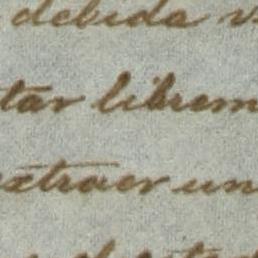 debida v
tar librem
extraer un